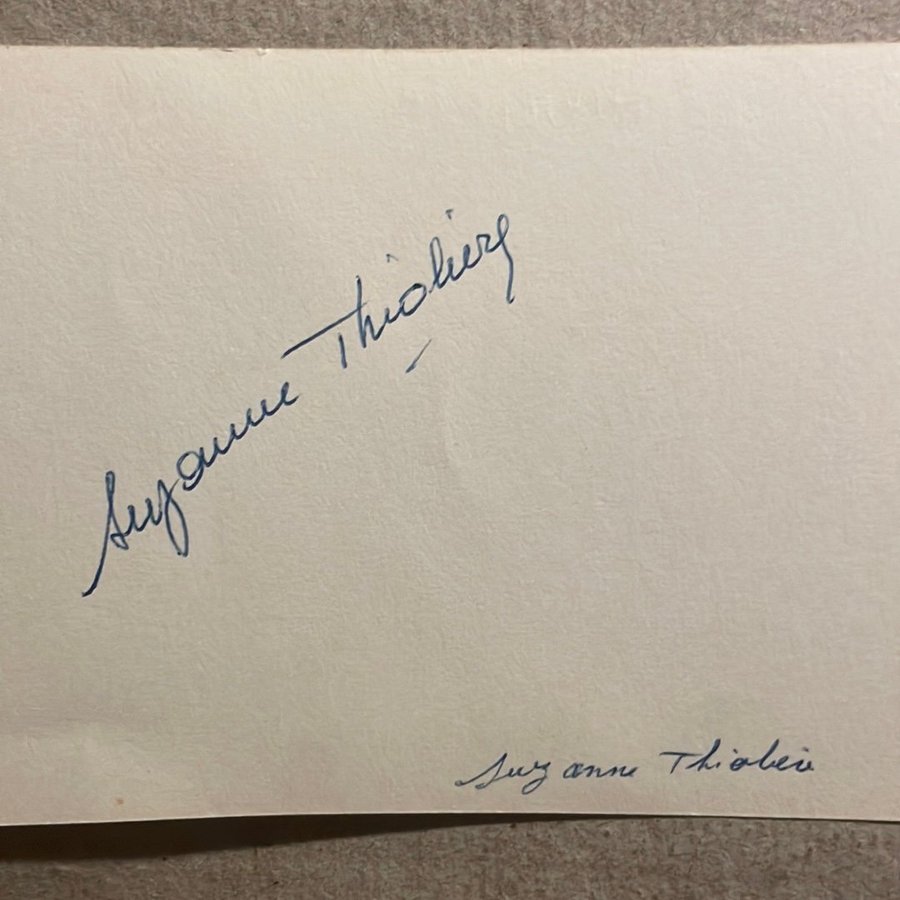 Suzanne Thiolierg
Suzanne Thiolier